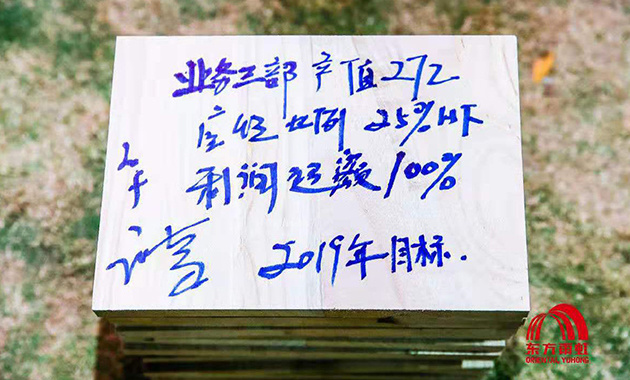 业务三部 产值272
应收比例 25%以下
利润 100%
2019年目标.
东方雨虹
ORIENTAL YUHONG